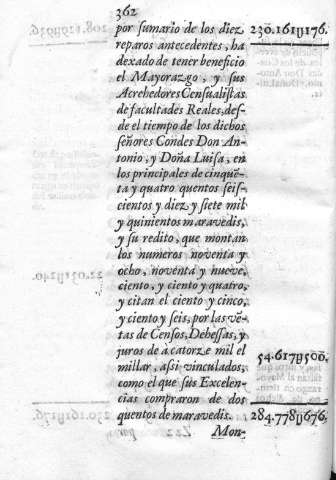 362
por sumario de los diez 230.161U176.
reparos antecedentes, ha
dexado de tener beneficio
el Mayorazgo, y sus
Acrehedores Censualistas
de facultades Reales, des-
de el tiempo de los dichos
señores Condes Don An-
tonio, y Doña Luisa, en
los principales de cinquē-
ta y quatro quentos seis-
cientos y diez y siete mil
y quinientos maravedis,
y su redito, que montan
los numeros noventa y
ocho, noventa y nueve,
ciento, y ciento y quatro,
y citan el ciento y cinco,
y ciento y seis, por las vē-
tas de Censos, Dehessas, y
juros de à catorze mil el
millar, assi vinculados, 54.617U500.
como el que sus Excelen-
cias compraron de dos
quentos de maravedis. 284.778U676.
Mon-